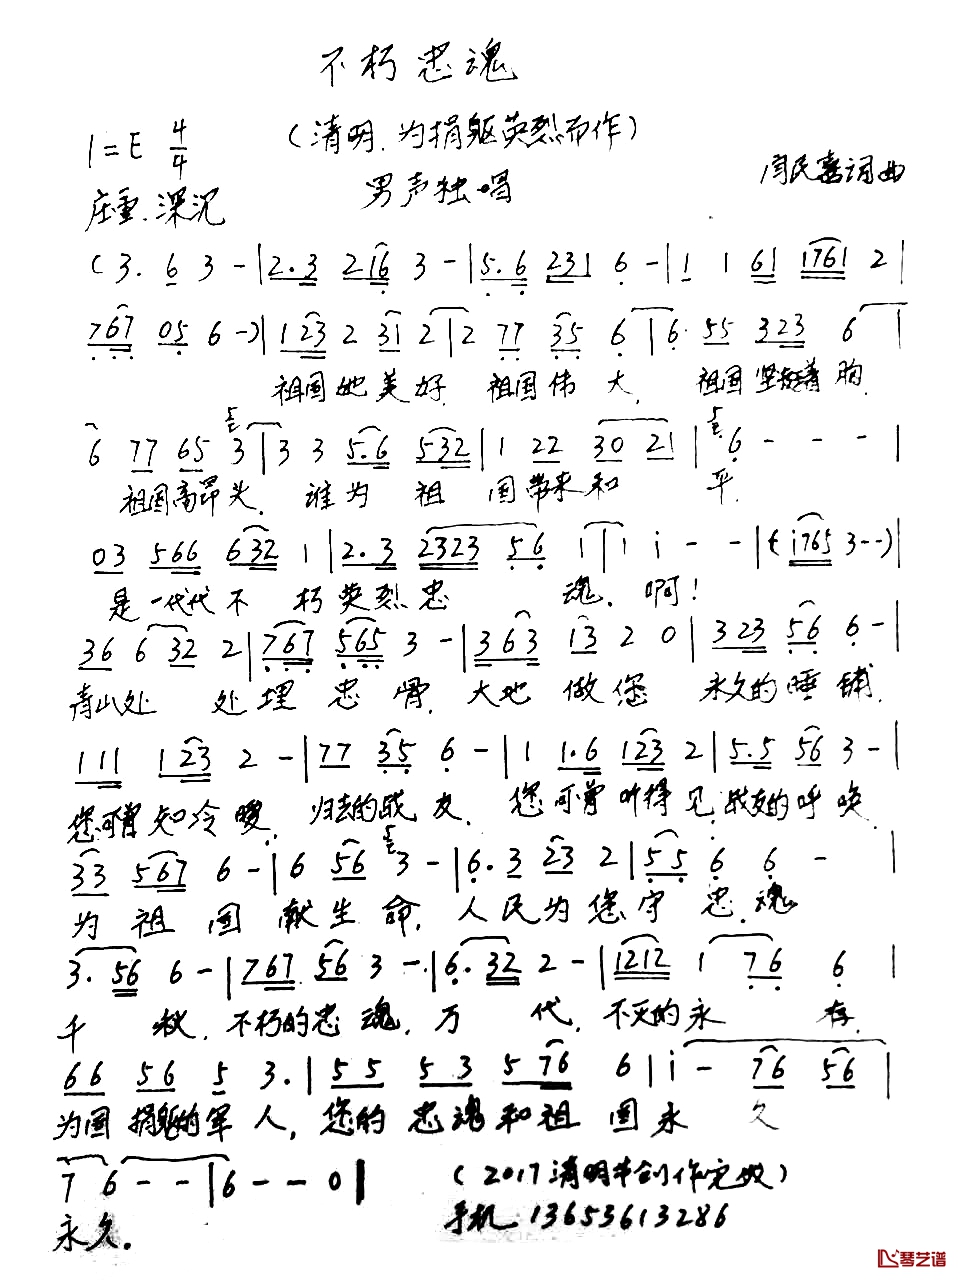 不朽忠魂
(清明.为捐躯英烈而作)
1=E 4/4
男声独唱
闫民嘉词曲
庄重.深沉
(3. 6 3 - | 2.3 216 3 - | 5.6 231 6 - | 1 1 61 1761 2 |
767 05 6 -) | 123 2 31 2 | 2 77 35 6 | 6. 55 323 6 |
祖国她美好 祖国伟大, 祖国坚挺着胸
6 77 65 3 | 3 3 5.6 532 | 1 22 30 21 | 6 - - - |
祖国高昂头. 谁为祖国带来和平.
03 566 632 1 | 2.3 2323 56 i | i i - - | (i765 3 - -) |
是一代代不朽英烈忠魂. 啊!
36 6 32 2 | 767 565 3 - | 363 13 2 0 | 323 56 6 - |
青山处处埋忠骨. 大地做您永久的睡铺.
111 123 2 - | 77 35 6 - | 1 1.6 123 2 | 5.5 56 3 - |
您可曾知冷暖. 归去的战友. 您可曾听得见战友的呼唤.
33 567 6 - | 6 56 3 - | 6.3 23 2 | 55 6 6 - |
为祖国献生命, 人民为您守忠魂
3. 56 6 - | 767 56 3 - | 6.32 2 - | 1212 1 76 6 |
千秋. 不朽的忠魂, 万代, 不灭的永存.
66 56 5 3. | 55 53 576 6 | i - 76 56 |
为国捐躯的军人, 您的忠魂和祖国永久
7 6 - - | 6 - - 0 |
(2017清明节创作完成)
永久.
手机 13653613286
琴艺谱